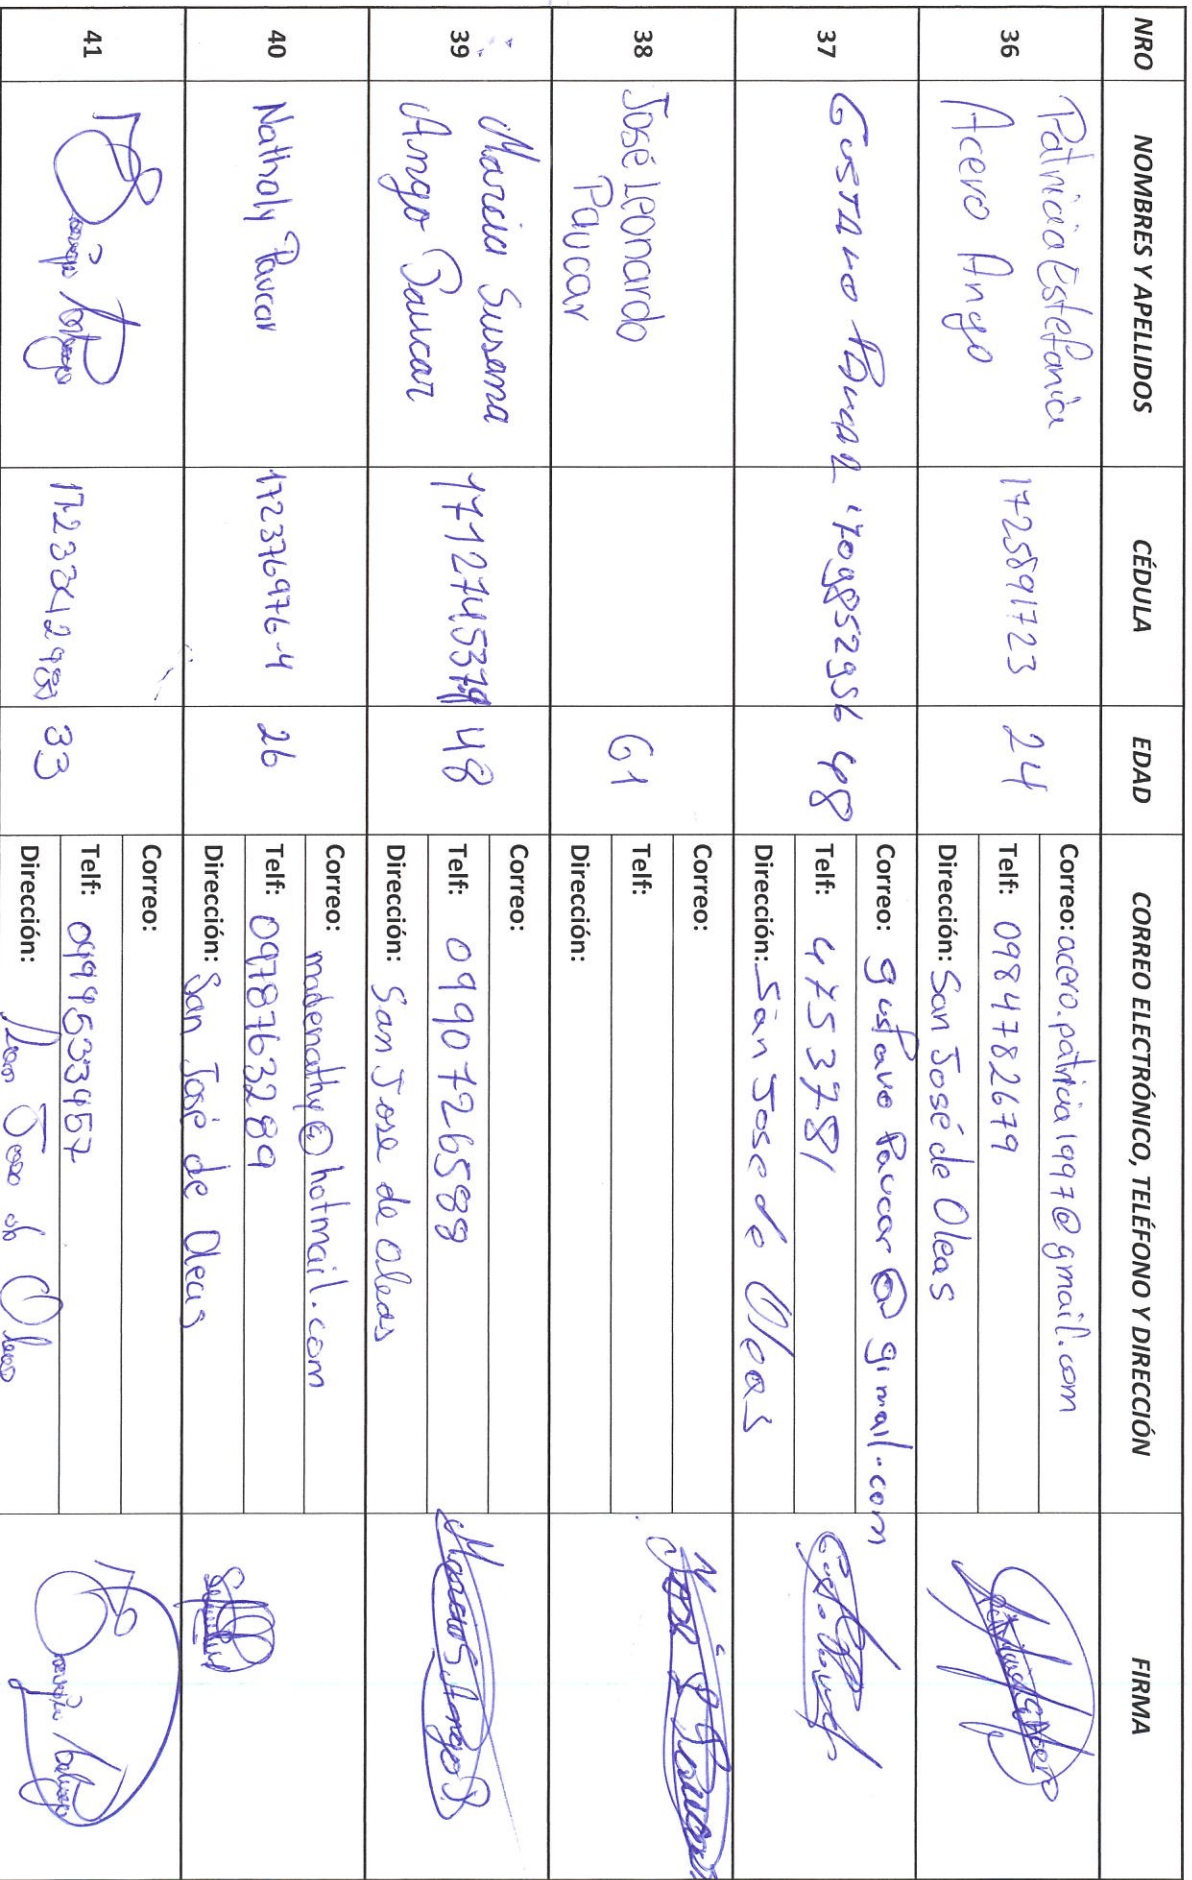 NRO NOMBRES Y APELLIDOS CÉDULA EDAD CORREO ELECTRÓNICO, TELÉFONO Y DIRECCIÓN FIRMA
36 Patricia Estefania Acero Ango 1725891723 24
Correo: acero.patricia1997@gmail.com
Telf: 0984782679
Dirección: San José de Oleas
37 Gustavo Paucar 1709852956 48
Correo: gustavo Paucar @ gimail.com
Telf: 4753781
Dirección: San Jose de Oleas
38 José Leonardo Paucar 61
Correo:
Telf:
Dirección:
39 Marcia Susana Ango Paucar 48
Correo:
Telf: 0990726588
Dirección: San Jose de Oleas
Marcia S. Ango P.
40 Nathaly Paucar 172376976-4 26
Correo: madenathy@hotmail.com
Telf: 0978763289
Dirección: San José de Oleas
41 33
Correo:
Telf: 0999533457
Dirección: San Jose de Oleas